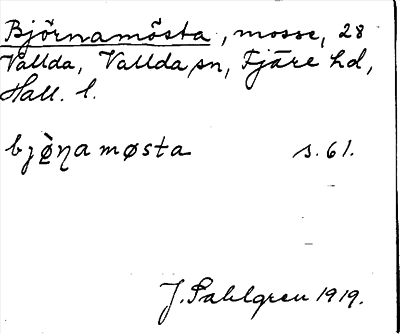 Björnamösta, mosse, 28
Vallda, Vallda sn, Fjäre hd,
Hall. l.
bjø̀ɳa møsta s. 61.
J. Sahlgren 1919.